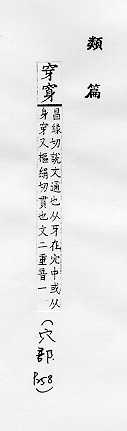 類篇
穿
昌緣切說文通也从牙在穴中或从
身穿又樞絹切貫也文二重音一
(穴部 P258)